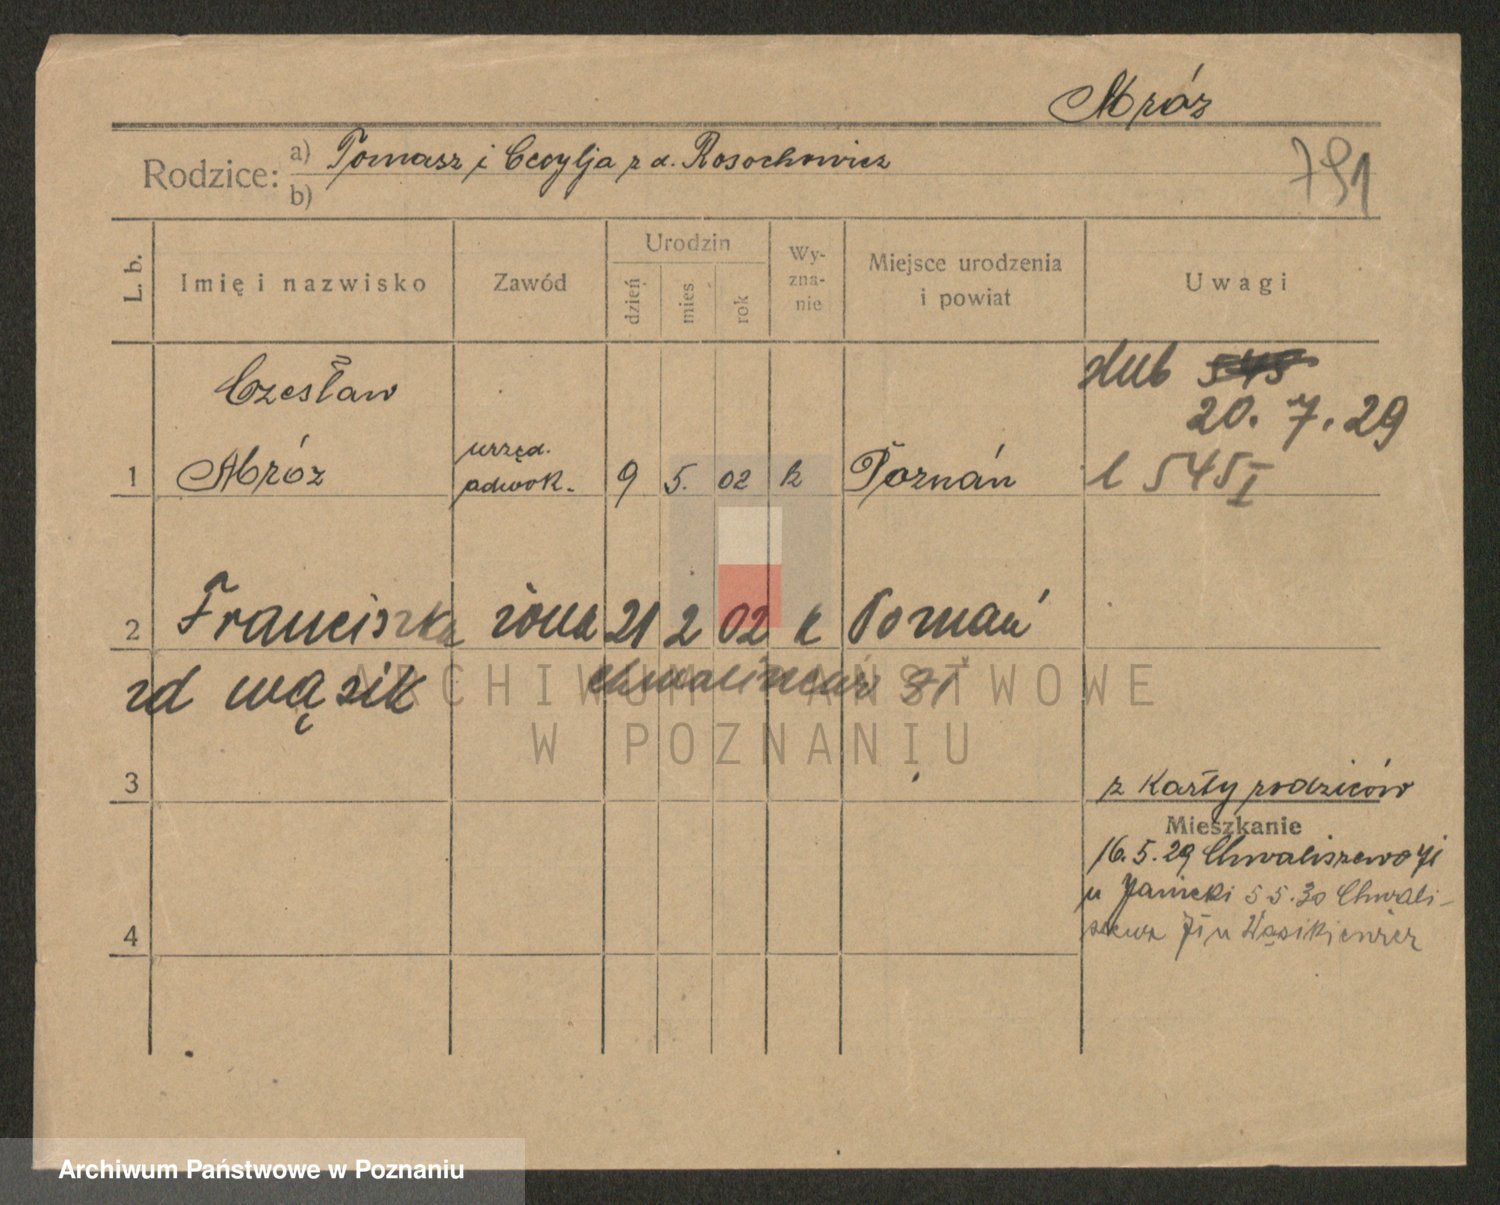 Mróz
Rodzice: a) Tomasz i Cecylja z d. Rosochowicz
b)
791
L. b. Imię i nazwisko Zawód Urodzin dzień mies rok Wy-zna-nie Miejsce urodzenia i powiat Uwagi
Czesław
ślub 545
20. 7. 29
1 Mróz urzęd. adwok. 9 5. 02 k Poznań l 545 I
2 Franciszka żona 21 2 02 k Poznań
zd Wąsik
3
z karty rodziców
Mieszkanie
16.5.29 Chwaliszewo 71
u Janicki 5 5.30 Chwali-
szewo 71 u Wąsikiewicz
4
ARCHIWUM PAŃSTWOWE
W POZNANIU
Archiwum Państwowe w Poznaniu